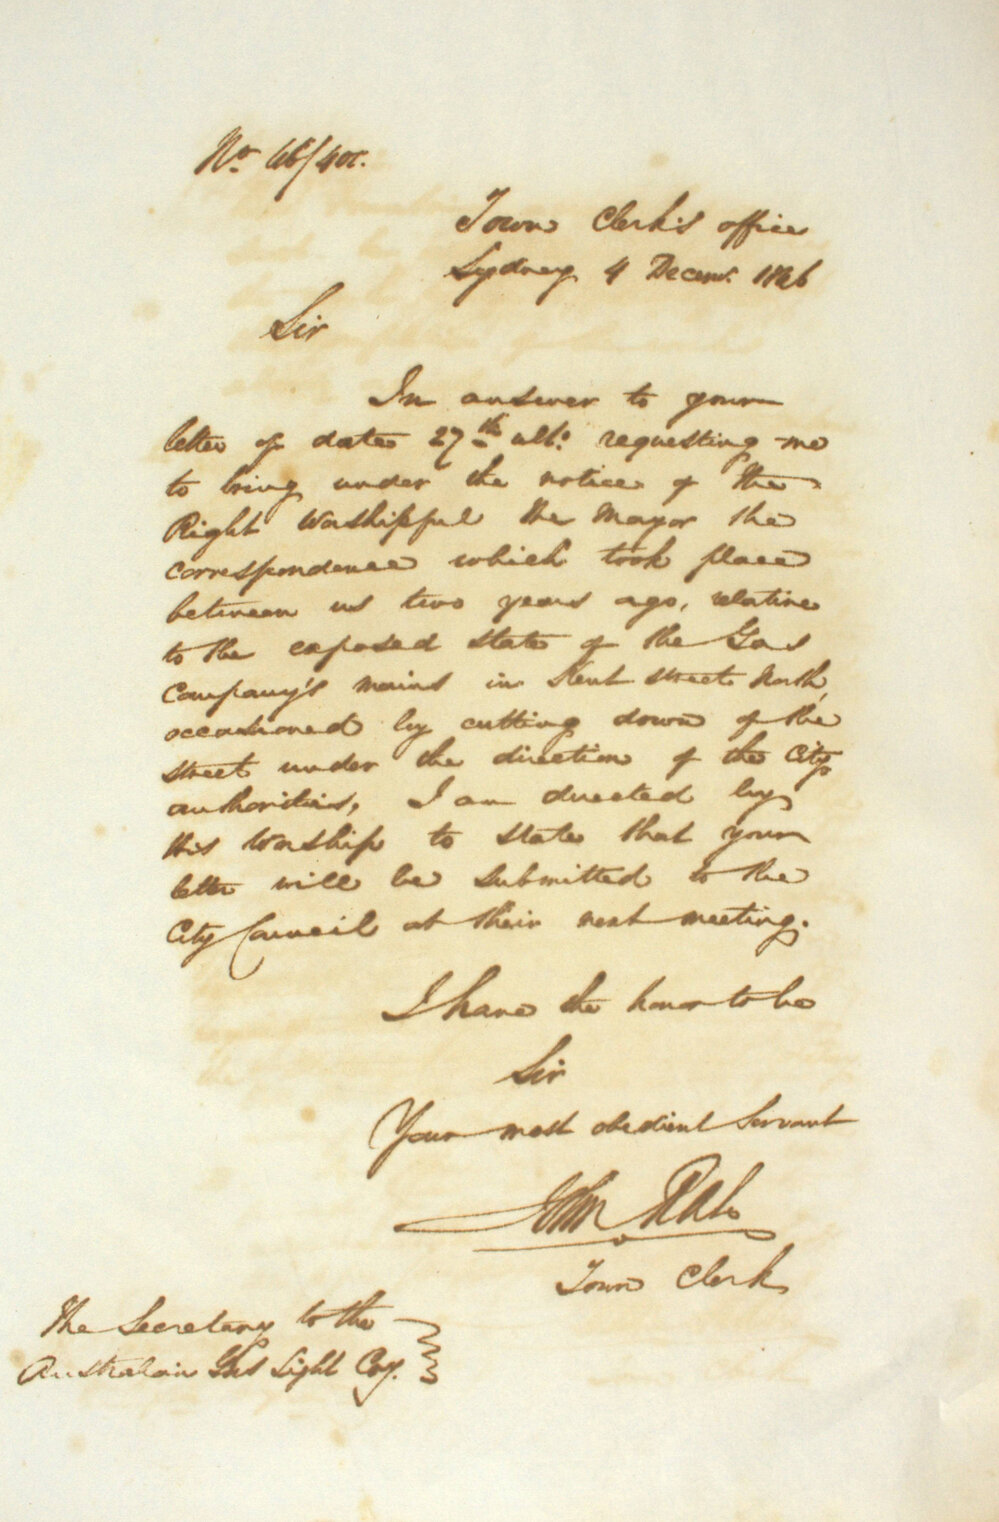 No. 46/401.
Town Clerk's office
Sydney 4 Decemr. 1846
Sir
In answer to your
letter of date 27th ulto. requesting me
to bring under the notice of the
Right Worshipful the Mayor the
correspondence which took place
between us two years ago, relative
to the exposed state of the Gas
Company's mains in Kent street North,
occasioned by cutting down of the
street under the direction of the City
authorities, I am directed by
His Worship to state that your
letter will be submitted to the
City Council at their next meeting.
I have the honor to be
Sir
Your most obedient Servant
John Rae
Town Clerk
The Secretary to the
Australian Gas Light Coy.